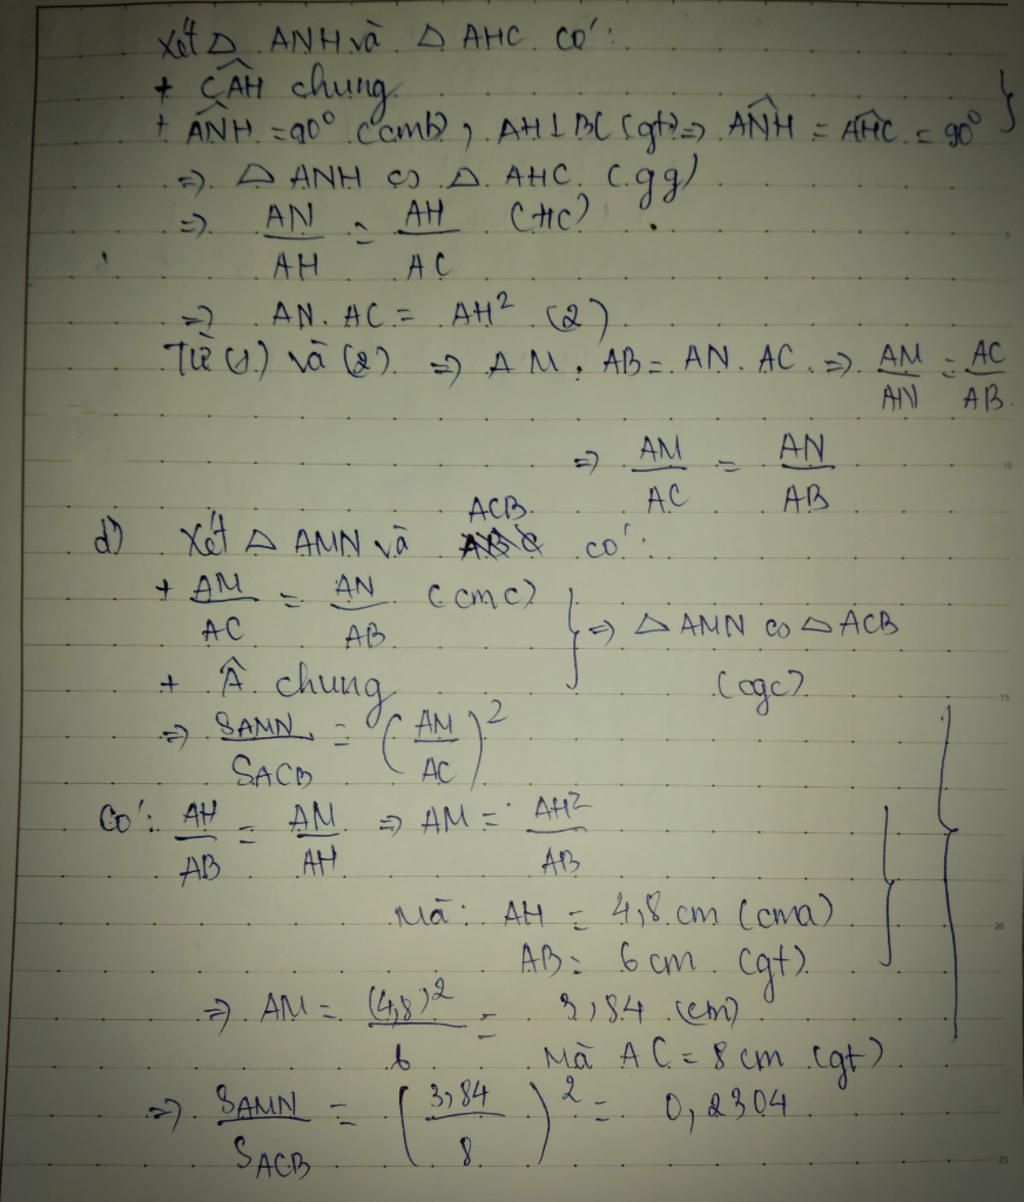 Xét △ ANH và △ AHC có:
+ CÂH chung
+ ANH = 90° (cmb), AH ⊥ BC (gt) => ANH = AHC = 90°
=> △ ANH ∽ △ AHC (gg)
=> AN/AH = AH/AC (HC)
=> AN. AC = AH² (2)
Từ (1) và (2) => AM. AB = AN. AC => AM/AN = AC/AB
=> AM/AC = AN/AB
d) Xét △ AMN và ACB có:
+ AM/AC = AN/AB (cmc)
+ Â chung
} => △ AMN ∽ △ ACB
(cgc)
=> SAMN/SACB = (AM/AC)²
Có: AH/AB = AM/AH => AM = AH²/AB
Mà: AH = 4,8 cm (cma)
AB = 6 cm (gt)
=> AM = (4,8)²/6 = 3,84 (cm)
Mà AC = 8 cm (gt)
=> SAMN/SACB = (3,84/8)² = 0,2304